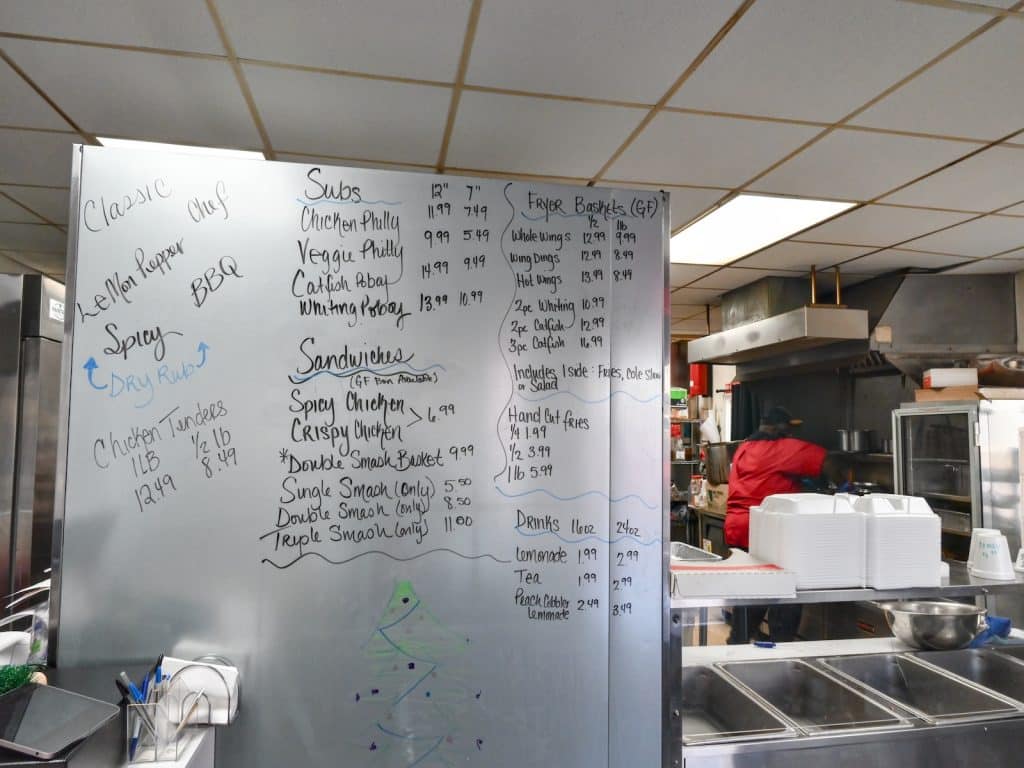 Classic
Chef
Lemon Pepper
BBQ
Spicy
Dry Rub
Chicken Tenders
1LB 1/2 lb
12.49 8.49
Subs 12" 7"
Chicken Philly 11.99 7.49
Veggie Philly 9.99 5.49
Catfish Poboy 14.99 9.49
Whiting Poboy 13.99 10.99
Sandwiches
(GF Bun Available)
Spicy Chicken
Crispy Chicken > 6.99
*Double Smash Basket 9.99
Single Smash (only) 5.50
Double Smash (only) 8.50
Triple Smash (only) 11.00
Fryer Baskets (GF)
1/2 lb
Whole Wings 12.99 9.99
Wing Dings 12.99 8.49
Hot Wings 13.99 8.49
2pc Whiting 10.99
2pc Catfish 12.99
3pc Catfish 16.99
Includes 1 side: Fries, Cole Slaw
or Salad
Hand Cut fries
1/4 1.99
1/2 3.99
1 lb 5.99
Drinks 16oz 24oz
Lemonade 1.99 2.99
Tea 1.99 2.99
Peach Cobbler
Lemonade 2.49 3.49